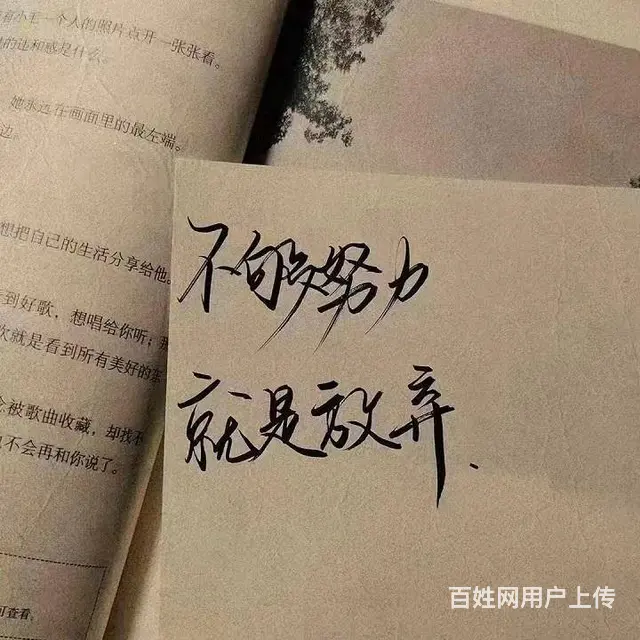 着小毛一个人的照片点开一张张看。
的违和感是什么。
她永远在画面里的最左端。
边
想把自己的生活分享给他
到好歌，想唱给你听；
次就是看到所有美好的
念被歌曲收藏，却找不
不会再和你说了。
可查看。
不够努力
就是放弃.
百姓网用户上传